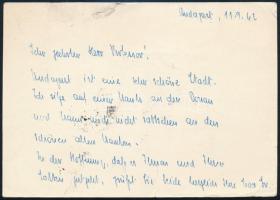 Budapest, 11.9.62
Sehr geehrter Herr Professor!
Budapest ist eine sehr schöne Stadt.
Ich sitze auf einer Bank an der Donau
und kann mich nicht sattsehen an den
schönen alten Bauten.
In der Hoffnung, daß es Ihnen und Ihrer
gut geht, grüßt Sie beide herzlich Ihre